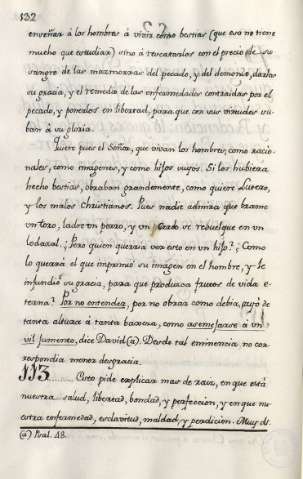 132
enseñar à los hombres à vivir como bestias (que eso no tiene
mucho que estudiar) sino à rescatarlos con el precio de su
sangre de las mazmorras del pecado, y del demonio, darles
su gracia, y el remedio de las enfermedades contraidas por el
pecado, y ponerlos en libertad, para que con sus virtudes su-
ban à su gloria.
Quiere pues el Señor, que vivan los hombres, como racio-
nales, como imagenes, y como hijos suyos. Si los hubiera
hecho bestias, obraban grandemente, como quiere Lutero,
y los malos Christianos. Pues nadie admira que brame
un toro, ladre un perro, y un cerdo se rebuelque en un
lodazal. ¿Pero quien querria ver esto en un hijo? ¿Como
lo querrà el que imprimiò su imagen en el hombre, y le
infundiò su gracia, para que produzca frutos de vida e-
terna? Por no entender, por no obrar como debia, cayò de
tanta altura à tanta baxeza, como asemejarse à un
vil jumento, dice David (a). Desde tal eminencia no cor-
respondia menor desgracia.
113 Creo pide explicar mas de raiz, en que està
nuestra salud, libertad, bondad, y perfeccion, y en que nu-
estra enfermedad, esclavitud, maldad, y perdicion. Muy di-
(a) Psal. 48.